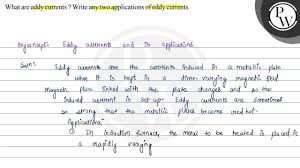 What are eddy currents ? Write any two applications of eddy currents.
PW
Key concept: Eddy currents and its applications
Soln:- Eddy currents are the currents induced in a metallic plate
when it is kept in a time-varying magnetic field
Magnetic flux linked with the plate changes and so the
induced current is set-up. Eddy currents are sometimes
so strong that the metallic plates become red hot.
Applications:
In induction furnace, the metal to be heated is placed in
a rapidly varying